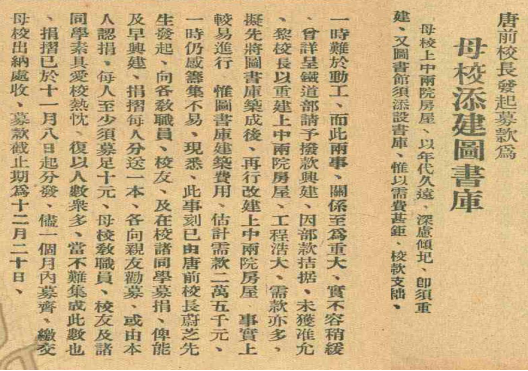 唐前校長發起募款爲
母校添建圖書庫
母校上中兩院房屋、以年代久遠、深慮傾圮、卽須重
建、又圖書館須添設書庫、惟以需費甚鉅、校款支絀、
一時難於動工、而此兩事、關係至爲重大、實不容稍緩
、曾詳呈鐵道部請予撥款興建、因部款拮据、未獲准允
、黎校長以重建上中兩院房屋、工程浩大、需款亦多、
擬先將圖書庫築成後、再行改建上中兩院房屋　事實上
較易進行　惟圖書庫建築費用、估計需款二萬五千元、
一時仍感籌集不易、現悉、此事刻已由唐前校長蔚芝先
生發起、向各敎職員、校友、及在校諸同學募捐、俾能
及早興建、捐摺每人分送一本、各向親友勸募、或由本
人認捐、每人至少須募足十元、母校敎職員、校友及諸
同學素具愛校熱忱、復以人數衆多、當不難集成此數也
、捐摺已於十一月八日起分發、儘一個月內募齊、繳交
母校出納處收、募款截止期爲十二月二十日、